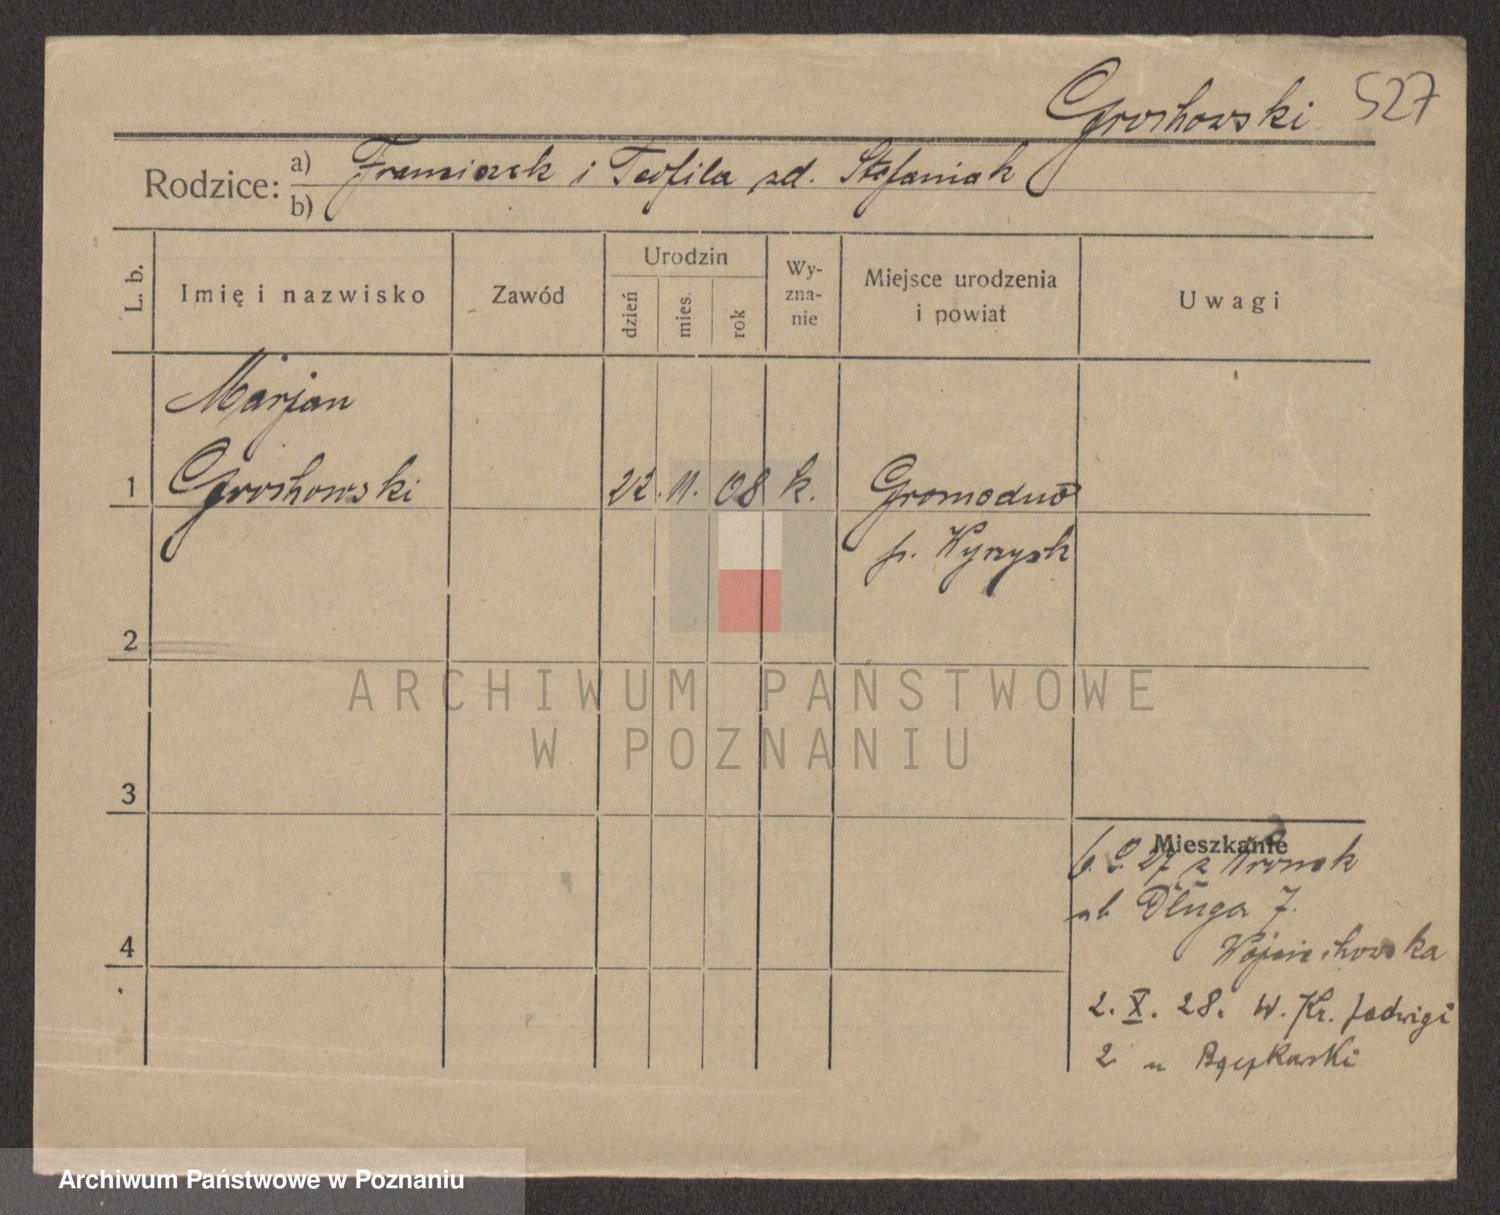 Grochowski 527
Rodzice: a) Franciszek i Teofila zd. Stefaniak
b)
L. b. Imię i nazwisko Zawód Urodzin dzień mies. rok Wyzna-nie Miejsce urodzenia i powiat Uwagi
Marjan
1 Grochowski 22. 11. 08 k. Gromadno
p. Wyrzysk
2
3
4
Mieszkanie
27 z Wronek
ul. Długa 7.
Wojciechowska
2. X. 28. W. Kr. Jadwigi
2 u
ARCHIWUM PAŃSTWOWE
W POZNANIU
Archiwum Państwowe w Poznaniu